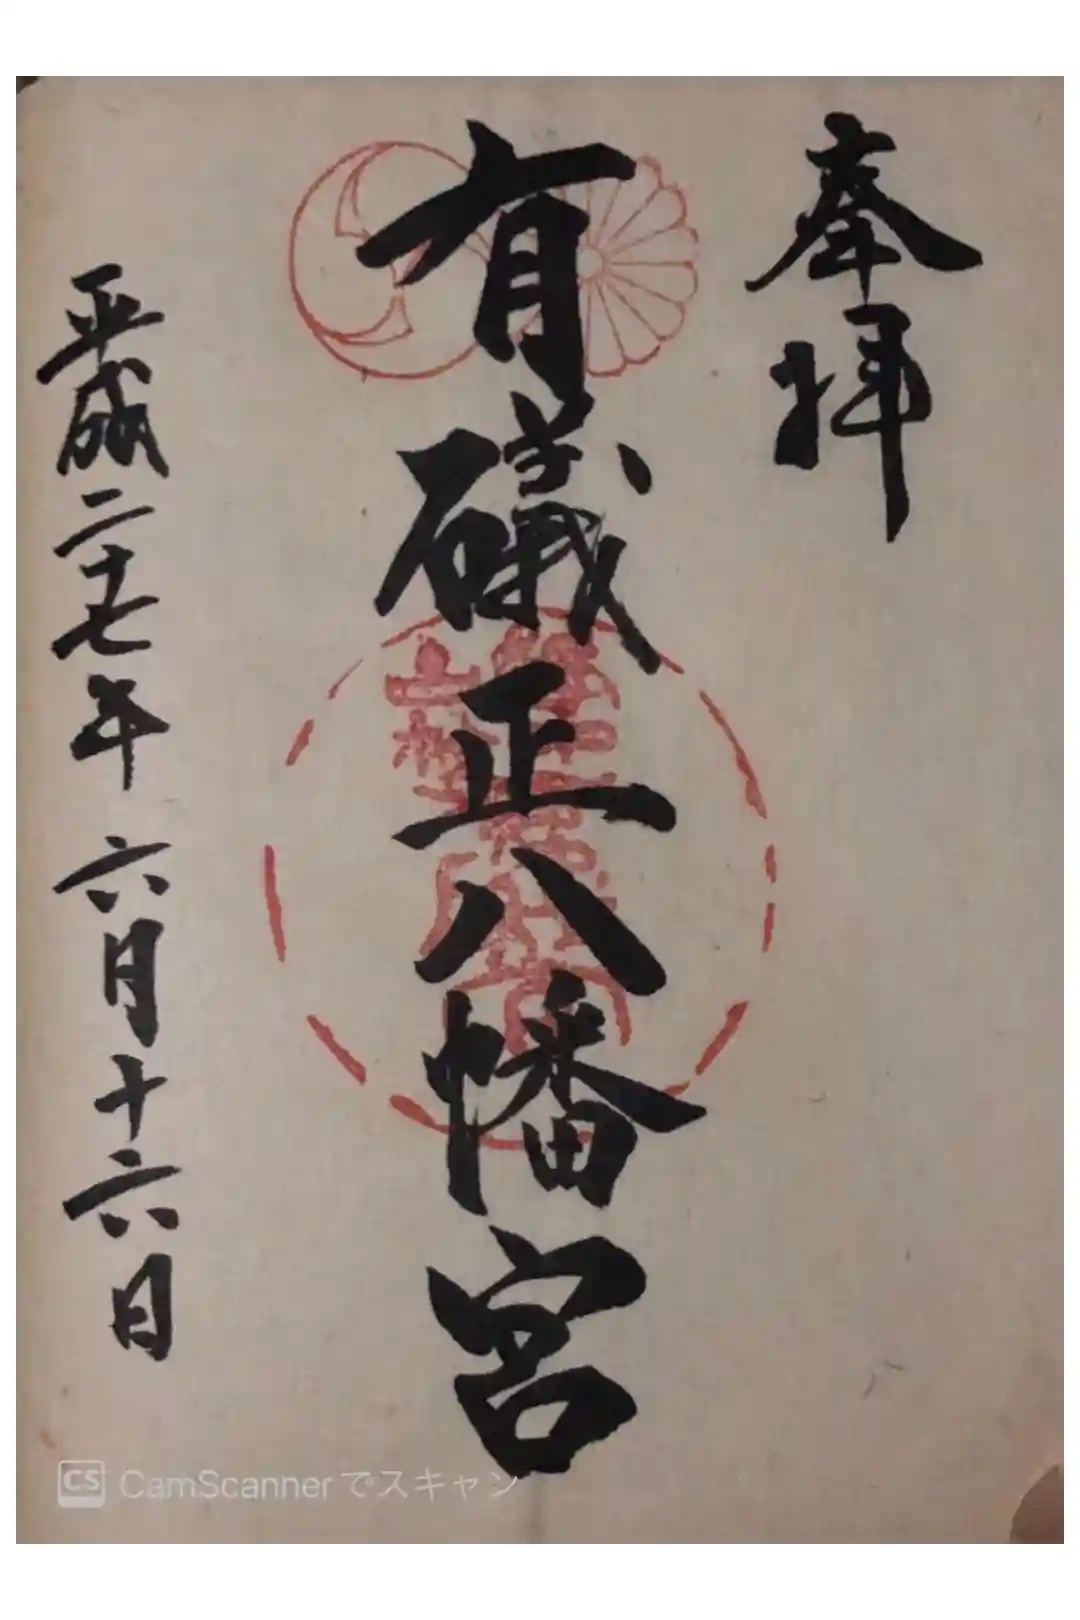 奉拝
有礒正八幡宮
平成二十七年 六月十六日
CS CamScannerでスキャン